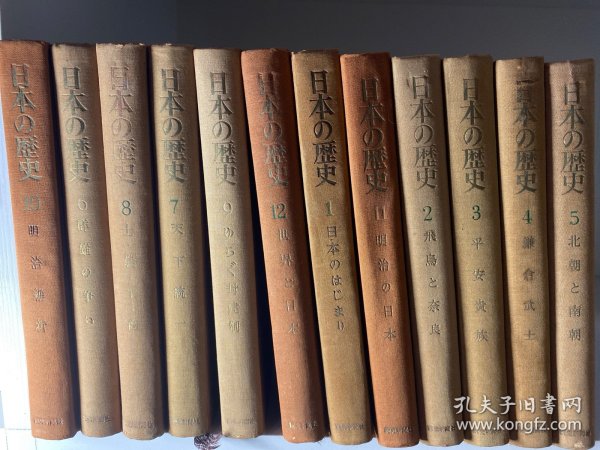 日本の歴史
10
明治維新
日本の歴史
6
日本の歴史
8
日本の歴史
7
天下統一
日本の歴史
9
ゆらぐ封建制
日本の歴史
12
世界と日本
日本の歴史
1
日本のはじまり
日本の歴史
11
明治の日本
日本の歴史
2
飛鳥と奈良
日本の歴史
3
平安貴族
日本の歴史
4
鎌倉武士
日本の歴史
5
北朝と南朝
孔夫子旧书网
www.kongfz.com